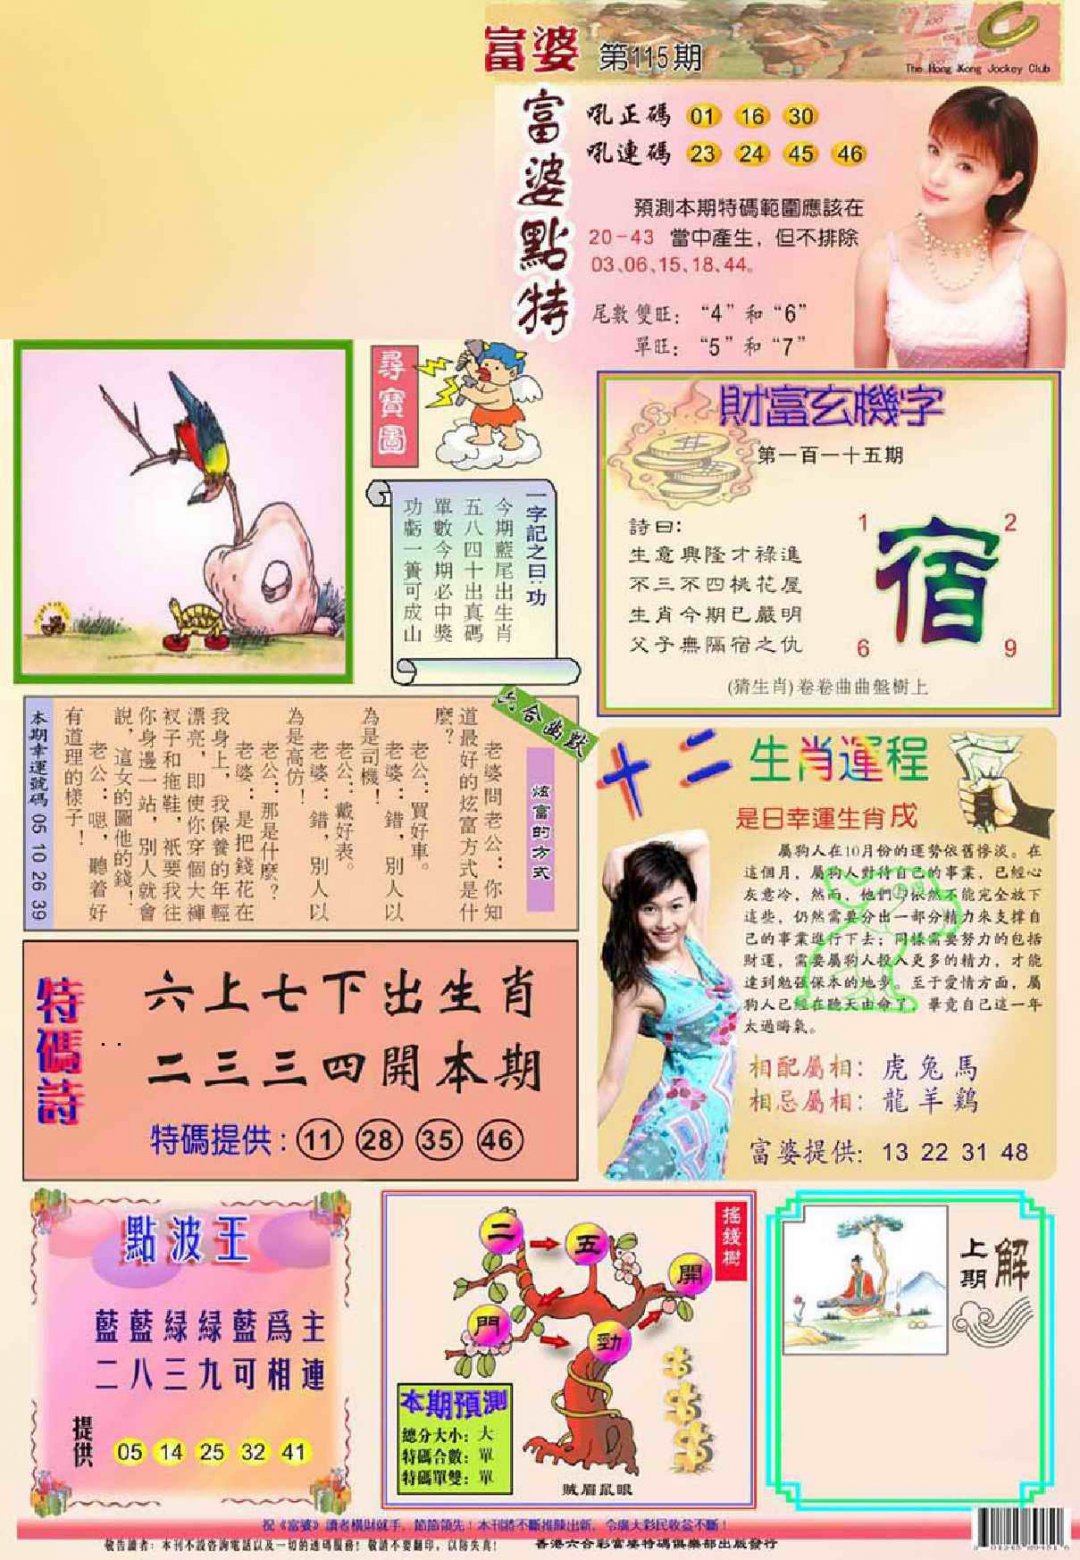 富婆 第115期
The Hong Kong Jockey Club
富婆點特
吼正碼 01 16 30
吼連碼 23 24 45 46
預測本期特碼範圍應該在
20-43 當中產生，但不排除
03、06、15、18、44。
尾數雙旺：“4”和“6”
單旺：“5”和“7”
尋寶圖
一字記之曰：功
今期藍尾出生肖
五八四十出真碼
單數今期必中獎
功虧一簣可成山
財富玄機字
第一百一十五期
詩曰：
生意興隆才祿進
不三不四桃花屋
生肖今期已嚴明
父子無隔宿之仇
1 2
宿
6 9
(猜生肖)卷卷曲曲盤樹上
六合幽默
炫富的方式
老婆問老公：你知
道最好的炫富方式是什
麼？
老公：買好車。
老婆：錯，別人以
為是司機！
老公：戴好表。
老婆：錯，別人以
為是高仿！
老公：那是什麼？
老婆：是把錢花在
我身上，我保養的年輕
漂亮，即使你穿個大褲
衩子和拖鞋，衹要我往
你身邊一站，別人就會
說，這女的圖他的錢！
老公：嗯，聽着好
有道理的樣子！
本期幸運號碼 05 10 26 39
十二生肖運程
是日幸運生肖戌
屬狗人在10月份的運勢依舊慘淡。在
這個月，屬狗人對待自己的事業，已經心
灰意冷，然而，他們卻依然不能完全放下
這些，仍然需要分出一部分精力來支撐自
己的事業進行下去；同樣需要努力的包括
財運，需要屬狗人投入更多的精力，才能
達到勉強保本的地步。至于愛情方面，屬
狗人已經在聽天由命了，畢竟自己這一年
太過晦氣。
相配屬相：虎兔馬
相忌屬相：龍羊鷄
富婆提供：13 22 31 48
特碼詩
六上七下出生肖
二三三四開本期
特碼提供：11 28 35 46
點波王
藍藍緑緑藍爲主
二八三九可相連
提供 05 14 25 32 41
搖錢樹
二 五 開
門 勁
本期預測
總分大小：大
特碼合數：單
特碼單雙：單
賊眉鼠眼
上期解
祝《富婆》讀者橫財就手，節節領先！本刊將不斷推陳出新，令廣大彩民收益不斷！
敬告讀者：本刊不設咨詢電話以及一切的透碼服務！敬請不要翻印，以防失真！
香港六合彩富婆特碼俱樂部出版發行